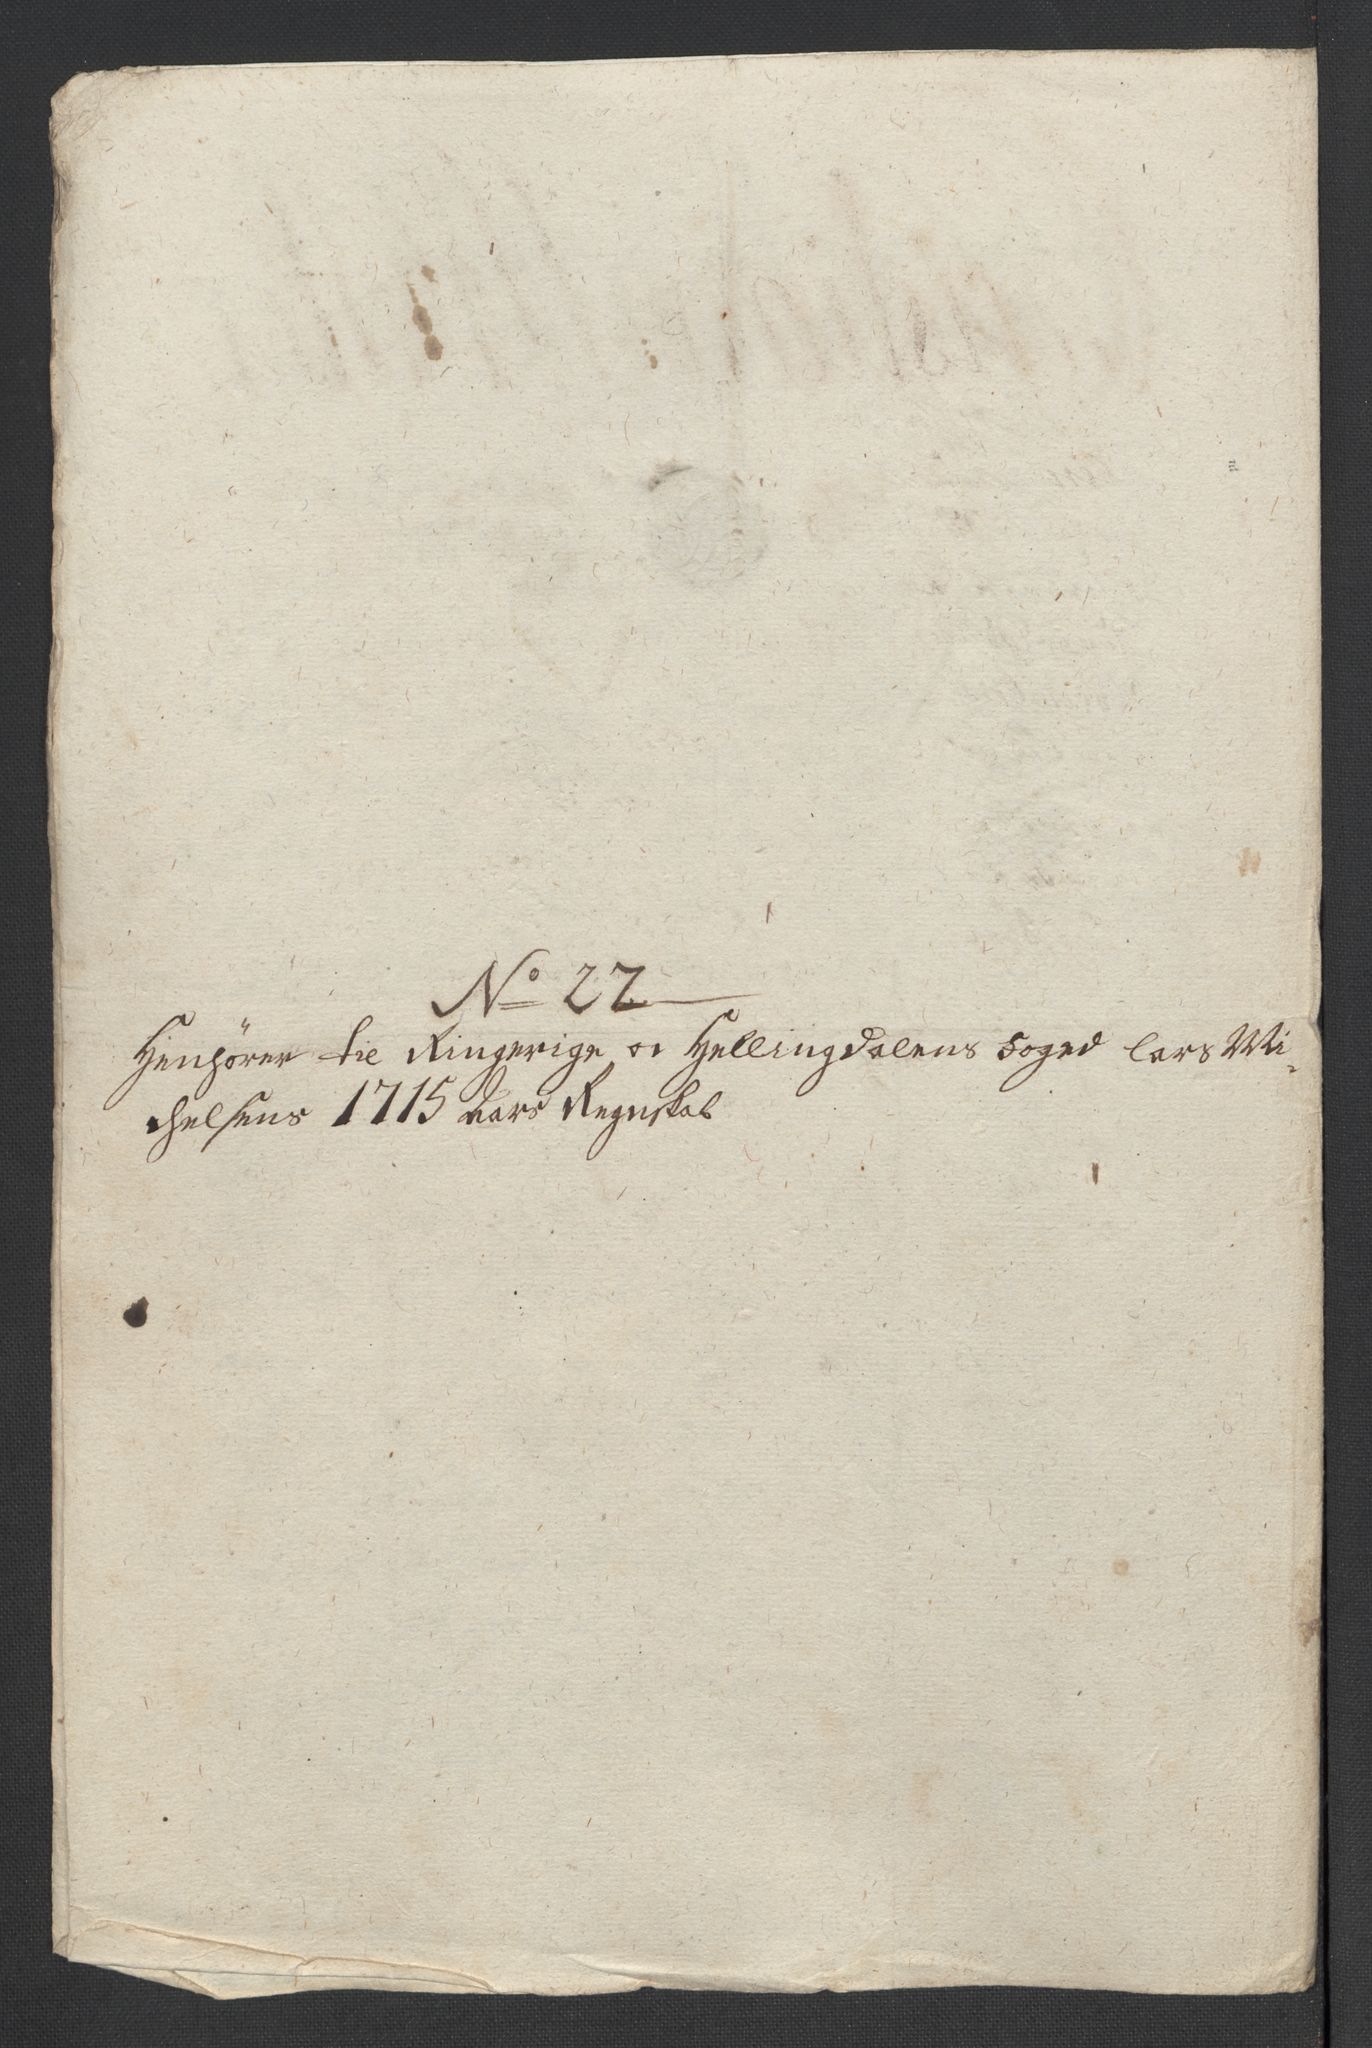 No 22
Henhörer til Ringerige og Hellingdalens foged lars Mi-
chelsens 1715 aars Regnskab